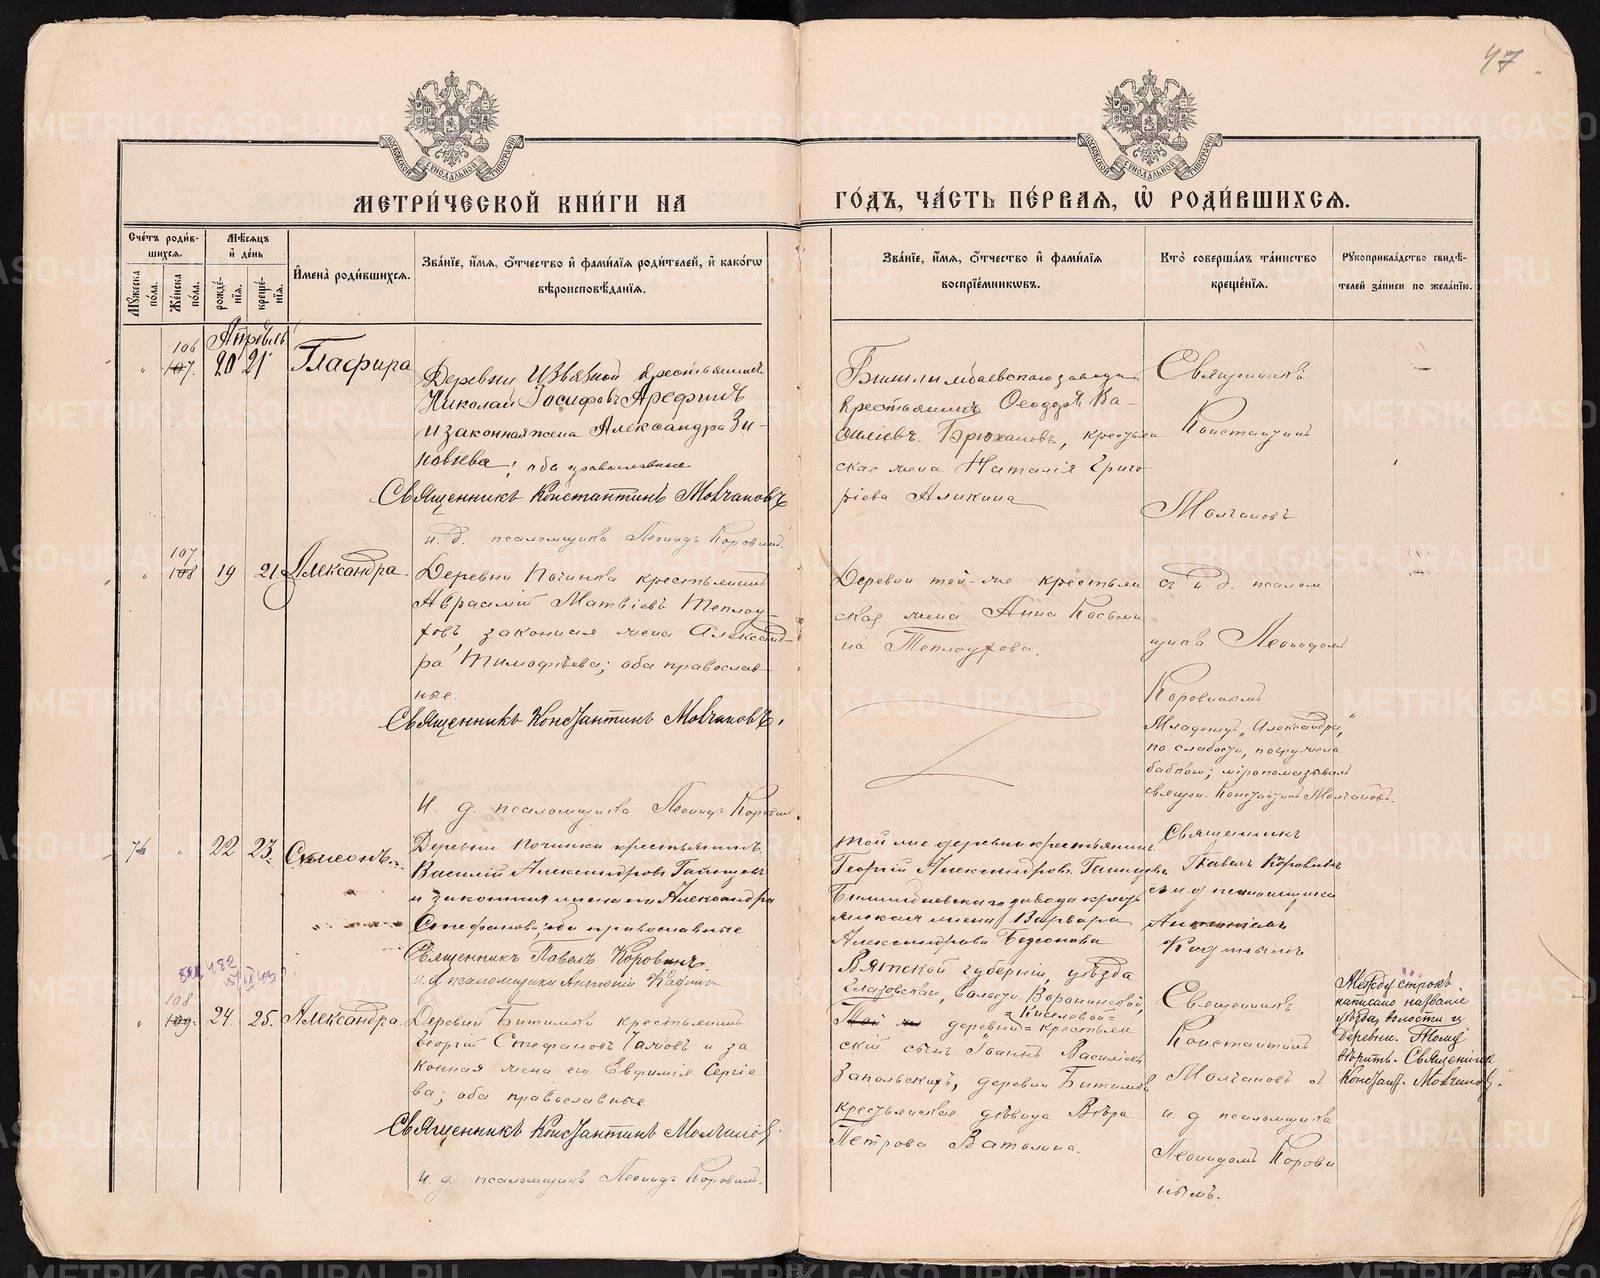 47
МОСКОВСКОЙ СѴНОДАЛЬНОЙ ТИПОГРАФІИ
МОСКОВСКОЙ СѴНОДАЛЬНОЙ ТИПОГРАФІИ
МЕТРИ́ЧЕСКОЙ КНИ́ГИ НА
ГО́ДЪ, ЧА́СТЬ ПЕ́РВАѦ, Ѡ҆ РОДИ́ВШИХСѦ.
Сче́тъ роди́в-
шихсѧ.
Мꙋ́жеска по́ла.
Же́нска по́ла.
Мѣ́сѧцъ
и҆ де́нь
рожде́-
нїѧ.
креще́-
нїѧ.
И҆мена̀ роди́вшихсѧ.
Зва́нїе, и҆́мѧ, ѻ҆́тчество и҆ фами́лїѧ роди́телей, и҆ како́гѡ
вѣроисповѣ́данїѧ.
Зва́нїе, и҆́мѧ, ѻ҆́тчество и҆ фами́лїѧ
воспрїе́мникѡвъ.
Кто̀ соверша́лъ та́инство
креще́нїѧ.
Рꙋкоприкла́дство свидѣ́-
телей за́писи по жела́нїю.
Апрѣль
106
107.
20 21
Глафира
Деревни Извѣзной крестьянинъ
Николай Іосифовъ Арефинъ
и законная жена Александра Зи-
новьева; оба православные
Священникъ Константинъ Молчановъ
и. д. псаломщика Леонидъ Коровинъ.
Билимбаевскаго завода
крестьянинъ Ѳеодоръ Ва-
силіевъ Брюхановъ, крестьян
ская жена Наталія Григо
ріева Аликина
Священникъ
Константинъ
Молчановъ
107
108
19 21
Александра
Деревни Починка крестьянинъ
Авраамій Матвіевъ Теплоу-
ховъ, законная жена Александ-
ра Тимофѣева; оба православ
ные.
Священникъ Константинъ Молчановъ.
И. д. псаломщика Леонидъ Коровинъ
Деревни той-же крестьян
ская жена Анна Косьми
на Теплоухова.
съ и. д. псалом
щика Леонидомъ
Коровинымъ
Младенецъ „Александра,"
по слабости, погружена
бабкою; мѵропомазывалъ
священ. Константинъ Молчановъ.
76
22 23.
Симеонъ.
Деревни Починка крестьянинъ
Василій Александровъ Галицевъ
и законная жена его Александра
Стефанова оба православные
Священникъ Павелъ Коровинъ.
и. д. псаломщика Антоній Кадминъ
Той же деревни крестьянинъ
Георгій Александровъ Галицевъ.
Билимбаевскаго завода крест
янская жена Варвара
Александрова Бедсонова
Священникъ
Павелъ Коровинъ
съ и д псаломщика
Антоніемъ
Кадминымъ
482
108
109.
24 25.
Александра
Деревни Битимки крестьянинъ
Георгій Стефановъ Галовъ и за
конная жена его Евфимія Сергіе
ва; оба православные
Священникъ Константинъ Молчановъ.
и. д. псаломщика Леонидъ Коровинъ.
Вятской губерніи, уѣзда
Глазовскаго, волости Воронинской,
=Киселевой=
Той же деревни = крестьян
скій сынъ Іоаннъ Василіевъ
Запольскихъ, деревни Битимки
крестьянская дѣвица Вѣра
Петрова Ватолина.
Священникъ
Константинъ
Молчановъ съ
и д псаломщика
Леонидомъ Корови
нымъ.
Между строкъ
написано названіе
уѣзда, волости и
деревни. Тому
вѣрить. Священникъ
Констант. Молчановъ.